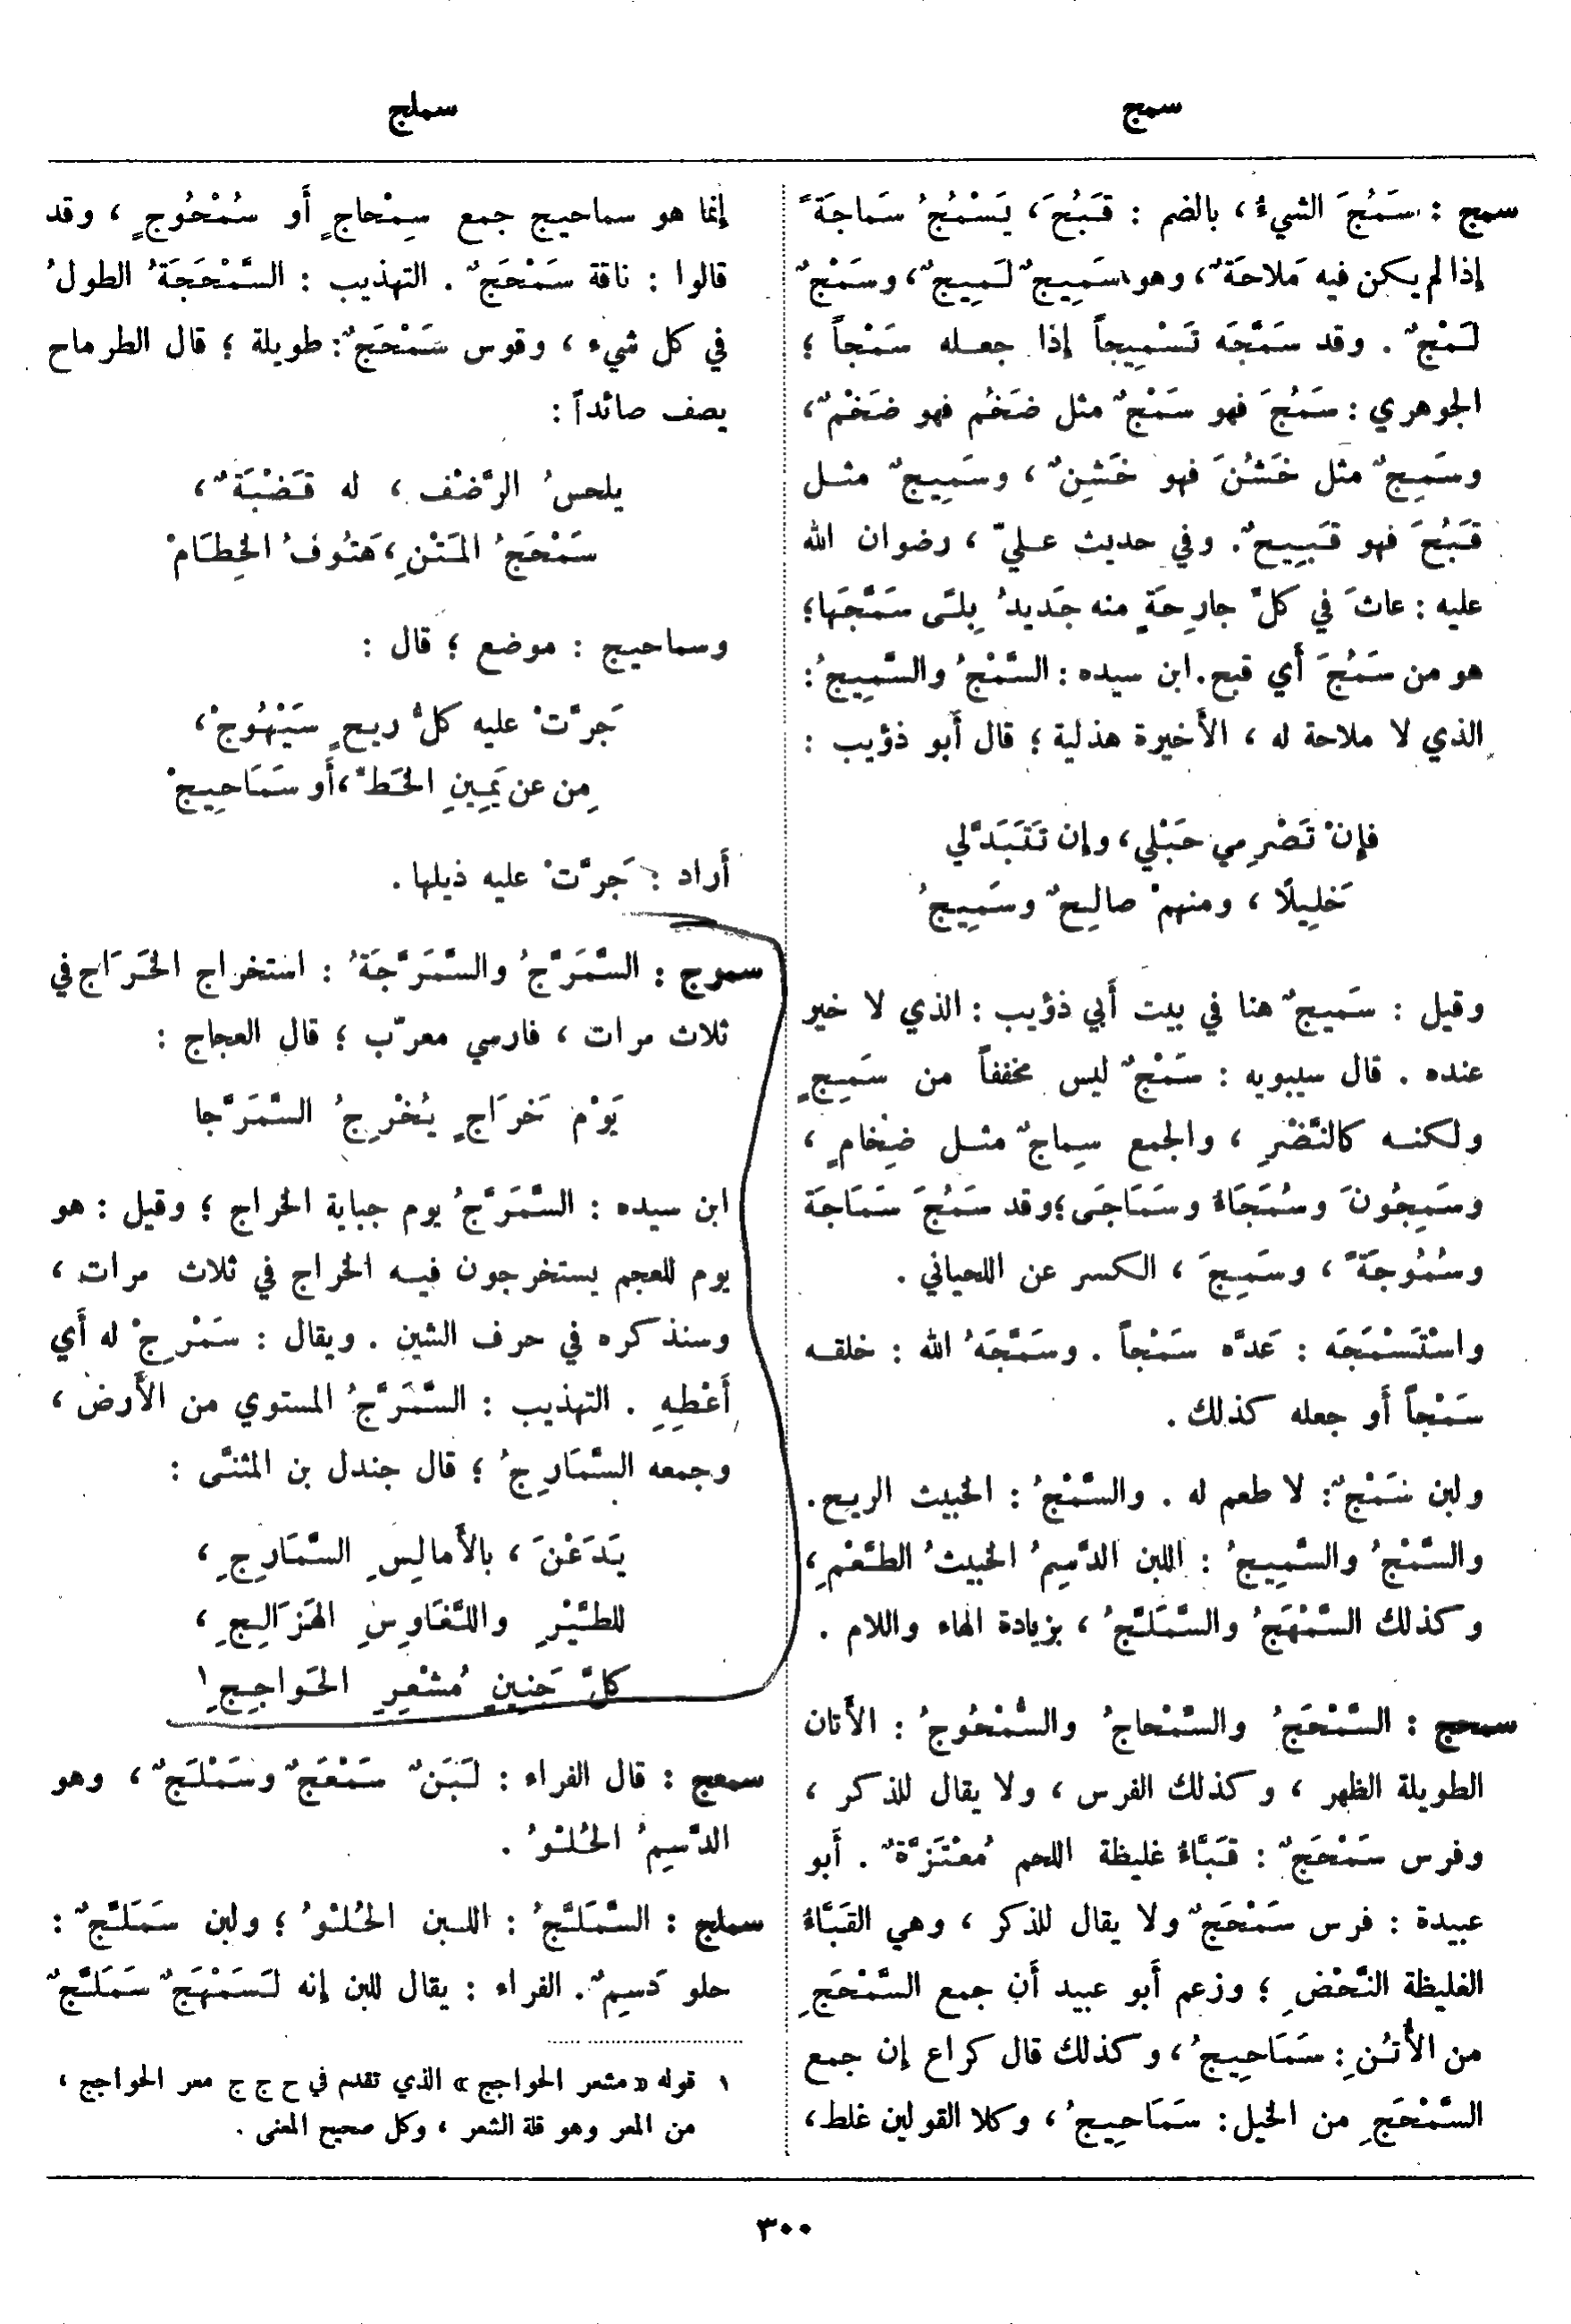 سمج
سملج
سمج : سَمُجَ الشيءُ، بالضم : قَبُحَ، يَسْمُجُ سَماجَةً
إذا لم يكن فيه مَلاحَةٌ، وهو سَمِيجٌ لَمِيجٌ، وسَمْجٌ
لَمْجٌ . وقد سَمَّجَه تَسْمِيجاً إذا جعله سَمْجاً ؛
الجوهري : سَمُجَ فهو سَمْجٌ مثل ضَخُم فهو ضَخْمٌ،
وسَمِجٌ مثل خَشُنَ فهو خَشِنٌ ، وسَمِيجٌ مثل
قَبُحَ فهو قَبِيحٌ. وفي حديث عليّ ، رضوان الله
عليه : عاثَ في كلِّ جارِحَةٍ منه جَديدُ بِلىً سَمَّجَها؛
هو من سَمُجَ أَي قبح. ابن سيده : السَّمْجُ والسَّمِيجُ :
الذي لا ملاحة له ، الأَخيرة هذلية ؛ قال أَبو ذؤيب :
فإنْ تَصْرِمي حَبْلي، وإن تَتَبَدَّلي
خَلِيلًا ، ومنهمْ صالِحٌ وسَمِيجُ
وقيل : سَميجٌ هنا في بيت أَبي ذؤيب : الذي لا خير
عنده . قال سيبويه : سَمْجٌ ليس مخففاً من سَمِجٍ
ولكنه كالنَّضْرِ ، والجمع سِماجٌ مثل ضِخامٍ ،
وسَمِجُونَ وسُمَجَاءُ وسَمَاجَى؛ وقد سَمُجَ سَمَاجَة
وسُمُوجَةً ، وسَمِجَ ، الكسر عن اللحياني .
واسْتَسْمَجَه : عَدَّه سَمْجاً . وسَمَّجَهُ الله : خلقه
سَمْجاً أَو جعله كذلك .
ولبن سَمْجٌ : لا طعم له . والسَّمْجُ : الخبيث الريح.
والسَّمْجُ والسَّمِيجُ : اللبن الدَّسِمُ الخبيثُ الطَّعْمِ،
وكذلك السَّمْهَجُ والسَّمَلَّجُ ، بزيادة الهاء واللام .
سمحج : السَّمْحَجُ والسِّمْحاجُ والسُّمْحُوجُ : الأَتان
الطويلة الظهر ، وكذلك الفرس ، ولا يقال للذكر ،
وفرس سَمْحَجٌ : قَبَّاءُ غليظة اللحم مُعْتَزَّةٌ . أَبو
عبيدة : فرس سَمْحَجٌ ولا يقال للذكر ، وهي القَبَّاءُ
الغليظة النَّحْضِ ؛ وزعم أَبو عبيد أَن جمع السَّمْحَجِ
من الأُتُنِ : سَمَاحِيجُ ، وكذلك قال كراع إن جمع
السَّمْحَجِ من الخيل : سَمَاحِيجُ ، وكلا القولين غلط،
إنما هو سماحيج جمع سِمْحاجٍ أَو سُمْحُوجٍ ، وقد
قالوا : ناقة سَمْحَجٌ . التهذيب : السَّمْحَجَةُ الطولُ
في كل شيء ، وقوس سَمْحَجٌ : طويلة ؛ قال الطرماح
يصف صائداً :
يلحسُ الرَّضْف ، له قَضْبَةٌ ،
سَمْحَجُ المَتْنِ ، هَتُوفُ الخِطَامْ
وسماحيج : موضع ؛ قال :
جَرَّتْ عليه كلُّ ريحٍ سَيْهُوجْ،
مِن عن يَمِينِ الخَطِّ، أَو سَمَاحِيجْ
أَراد : جَرَّتْ عليه ذيلها .
سمرج : السَّمَرَّجُ والسَّمَرَّجَةُ : استخراج الخَرَاج في
ثلاث مرات ، فارسي معرّب ؛ قال العجاج :
يَوْم خَرَاجٍ يُخْرِجُ السَّمَرَّجا
ابن سيده : السَّمَرَّجُ يوم جباية الخراج ؛ وقيل : هو
يوم للعجم يستخرجون فيه الخراج في ثلاث مرات ،
وسنذكره في حرف الشين . ويقال : سَمْرِجْ له أَي
أَعْطِهِ . التهذيب : السَّمَرَّجُ المستوي من الأَرض ،
وجمعه السَّمَارِجُ ؛ قال جندل بن المثنَّى :
يَدَعْنَ ، بالأَمالِسِ السَّمَارِجِ ،
للطَّيْرِ واللَّغَاوِسِ الهَزَالِجِ ،
كلَّ جَنِينٍ مُشْعِرِ الحَواجِجِ ١
سمعج : قال الفراء : لَبَنٌ سَمْعَجٌ وسَمْلَجٌ ، وهو
الدَّسِمُ الحُلْوُ .
سملج : السَّمَلَّجُ : اللبن الحُلْوُ ؛ ولبن سَمَلَّجٌ :
حلو دَسِمٌ . الفراء : يقال للبن إنه لَسَمْهَجٌ سَمَلَّجٌ
١ قوله « مشعر الحواجج » الذي تقدم في ح ج ج معر الحواجج ،
من المعر وهو قلة الشعر ، وكل صحيح المعنى .
٣٠٠